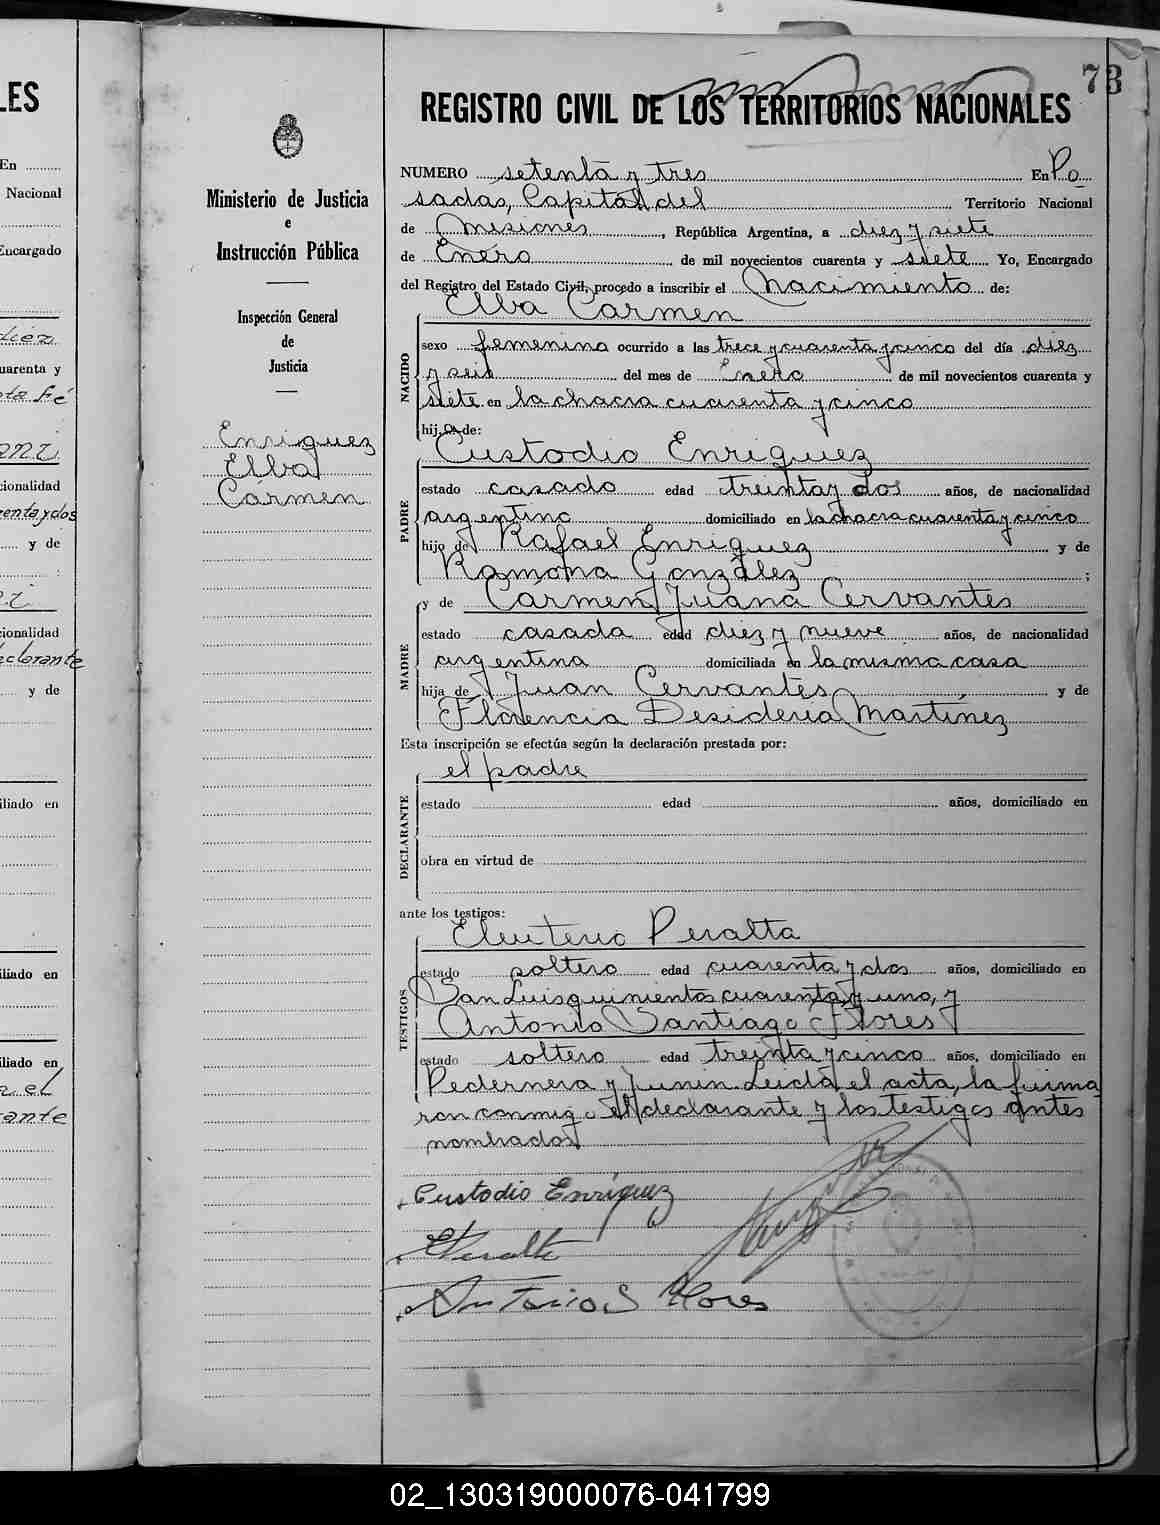 LES
En
Nacional
Encargado
diez
uarenta y
nta fé
cionalidad
entaydos
y de
cionalidad
eclarante
y de
iliado en
iliado en
iliado en
a el
rante
Ministerio de Justicia
e
Instrucción Pública
Inspección General
de
Justicia
Enriguez
Elba
Carmen
73
REGISTRO CIVIL DE LOS TERRITORIOS NACIONALES
NUMERO setenta y tres En Po
sadas, Capital del Territorio Nacional
de Misiones, República Argentina, a diez y siete
de Enero de mil novecientos cuarenta y siete Yo, Encargado
del Registro del Estado Civil, procedo a inscribir el Nacimiento de:
Elba Carmen
NACIDO
sexo femenino ocurrido a las trece y cuarenta y cinco del día diez
y seis del mes de Enero de mil novecientos cuarenta y
siete en la chacra cuarenta y cinco
hija de:
Custodio Enriguez
PADRE
estado casado edad treinta y dos años, de nacionalidad
argentino domiciliado en la chacra cuarenta y cinco
hijo de Rafael Enriguez y de
Ramona González ;
y de Carmen Juana Cervantes
MADRE
estado casada edad diez y nueve años, de nacionalidad
argentina domiciliada en la misma casa
hija de Juan Cervantes y de
Florencia Desideria Martínez
Esta inscripción se efectúa según la declaración prestada por:
el padre
DECLARANTE
estado edad años, domiciliado en
obra en virtud de
ante los testigos:
Eleuterio Peralta
TESTIGOS
estado soltero edad cuarenta y dos años, domiciliado en
San Luis quinientos cuarenta y uno, y
Antonio Santiago Flores
estado soltero edad treinta y cinco años, domiciliado en
Pedernera y Junin. Leida el acta, la firma
ron conmigo el declarante y los testigos antes
nombrados
Custodio Enríquez
EPeralta
Antonio S Flores
02_130319000076-041799